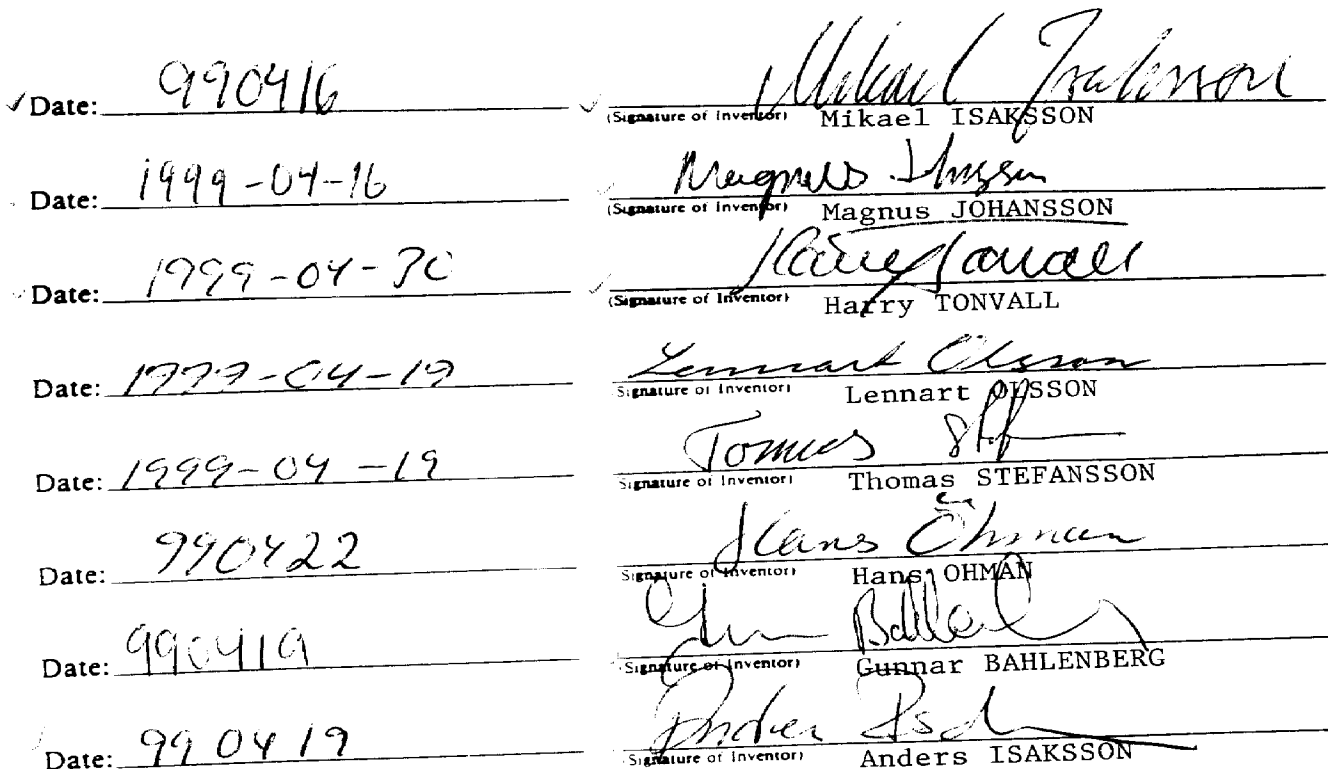 Date: 990416 Mikael Isaksson
(Signature of Inventor) Mikael ISAKSSON
Date: 1999-04-16 Magnus
(Signature of Inventor) Magnus JOHANSSON
Date: 1999-04-30 Harry Tonvall
(Signature of Inventor) Harry TONVALL
Date: 1999-04-19 Lennart Olsson
Signature of Inventor) Lennart OLSSON
Date: 1999-04-19 Tomas
Signature of Inventor) Thomas STEFANSSON
Date: 990422 Hans Öhman
Signature of Inventor) Hans OHMAN
Date: 990419
Signature of Inventor) Gunnar BAHLENBERG
Date: 990419
Signature of Inventor) Anders ISAKSSON